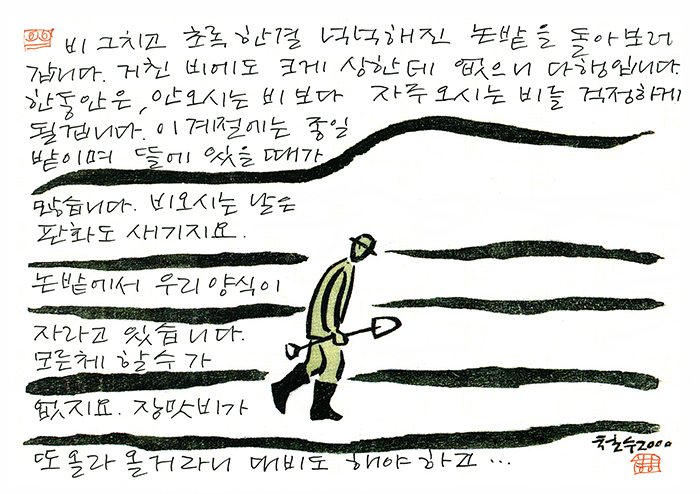 비 그치고 초록 한결 넉넉해진 논밭을 돌아보러
갑니다. 거친 비에도 크게 상한데 없으니 다행입니다.
한동안은, 안오시는 비보다 자주 오시는 비를 걱정하게
될겝니다. 이 계절에는 종일
밭이며 들에 있을 때가
많습니다. 비오시는 날은
판화도 새기지요.
논밭에서 우리 양식이
자라고 있습니다.
모른체 할 수가
없지요. 장맛비가
또 올라 올거라니 대비도 해야하고 ...
철수 2000